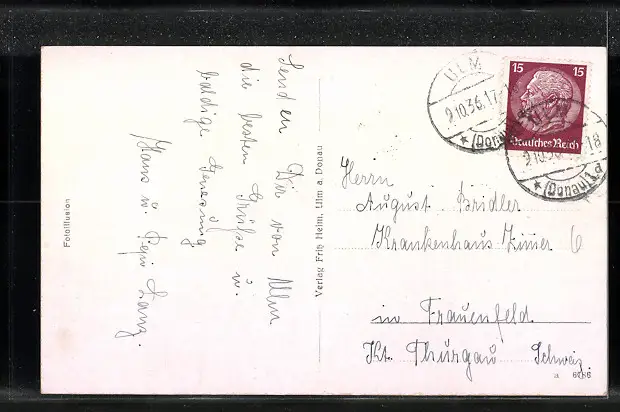 Senden Dir von Ulm
die besten Grüße u.
baldige Genesung
Hans u. Pepi Lang.
Fotoillusion
Verlag Fritz Helm, Ulm a. Donau
ULM
9.10.36.17-
★(Donau)
15 15
Deutsches Reich
9.10.36 -18
★(Donau)1 d
Herrn
August Bridler
Krankenhaus Zimer 6
in Frauenfeld
Kt. Thurgau Schweiz.
a 6786